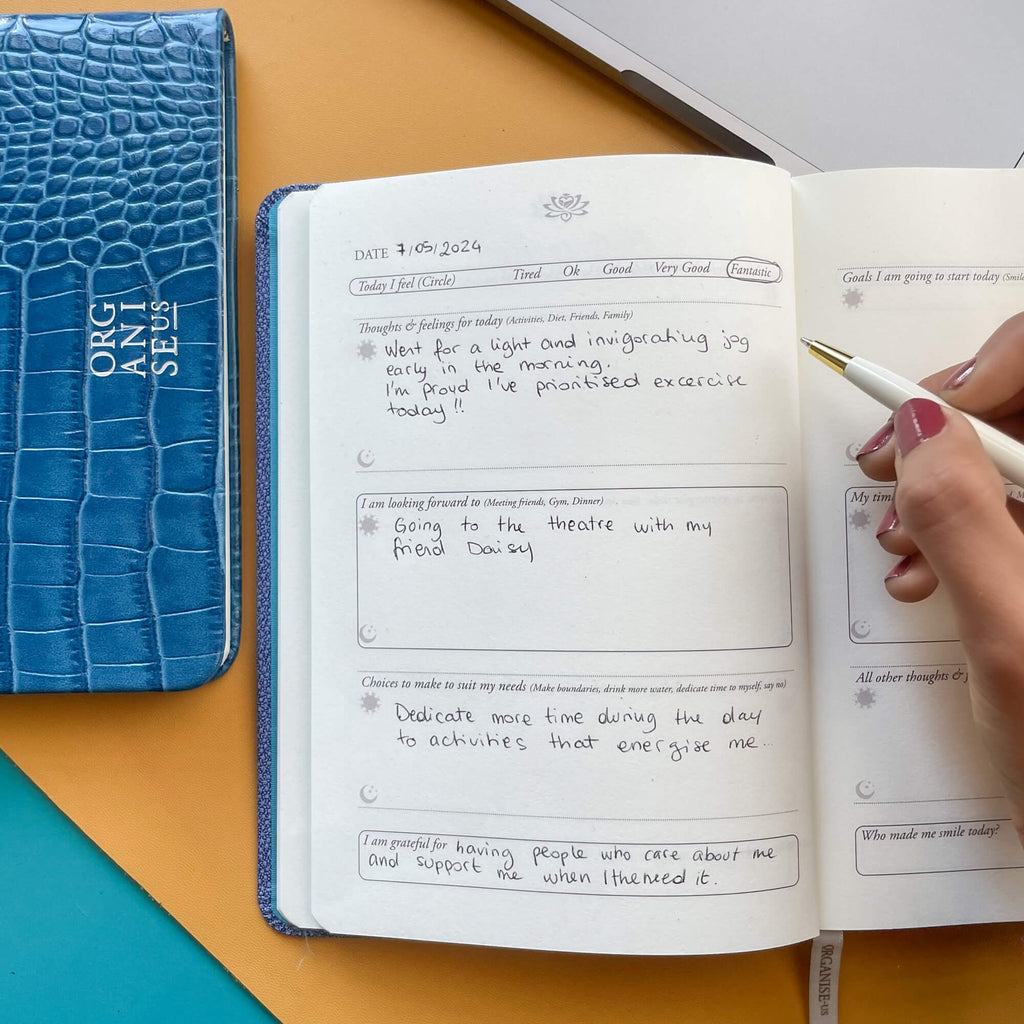 ORG
ANI
SEUS
DATE 7/05/2024
Today I feel (Circle) Tired Ok Good Very Good Fantastic
Thoughts & feelings for today (Activities, Diet, Friends, Family)
Went for a light and invigorating jog
early in the morning.
I'm proud I've prioritised excercise
today !!
I am looking forward to (Meeting friends, Gym, Dinner)
Going to the theatre with my
friend Daisy
Choices to make to suit my needs (Make boundaries, drink more water, dedicate time to myself, say no)
Dedicate more time during the day
to activities that energise me...
I am grateful for having people who care about me
and support me when I need it.
Goals I am going to start today
My
All other thoughts &
Who made me smile today?
ORGANISE-US